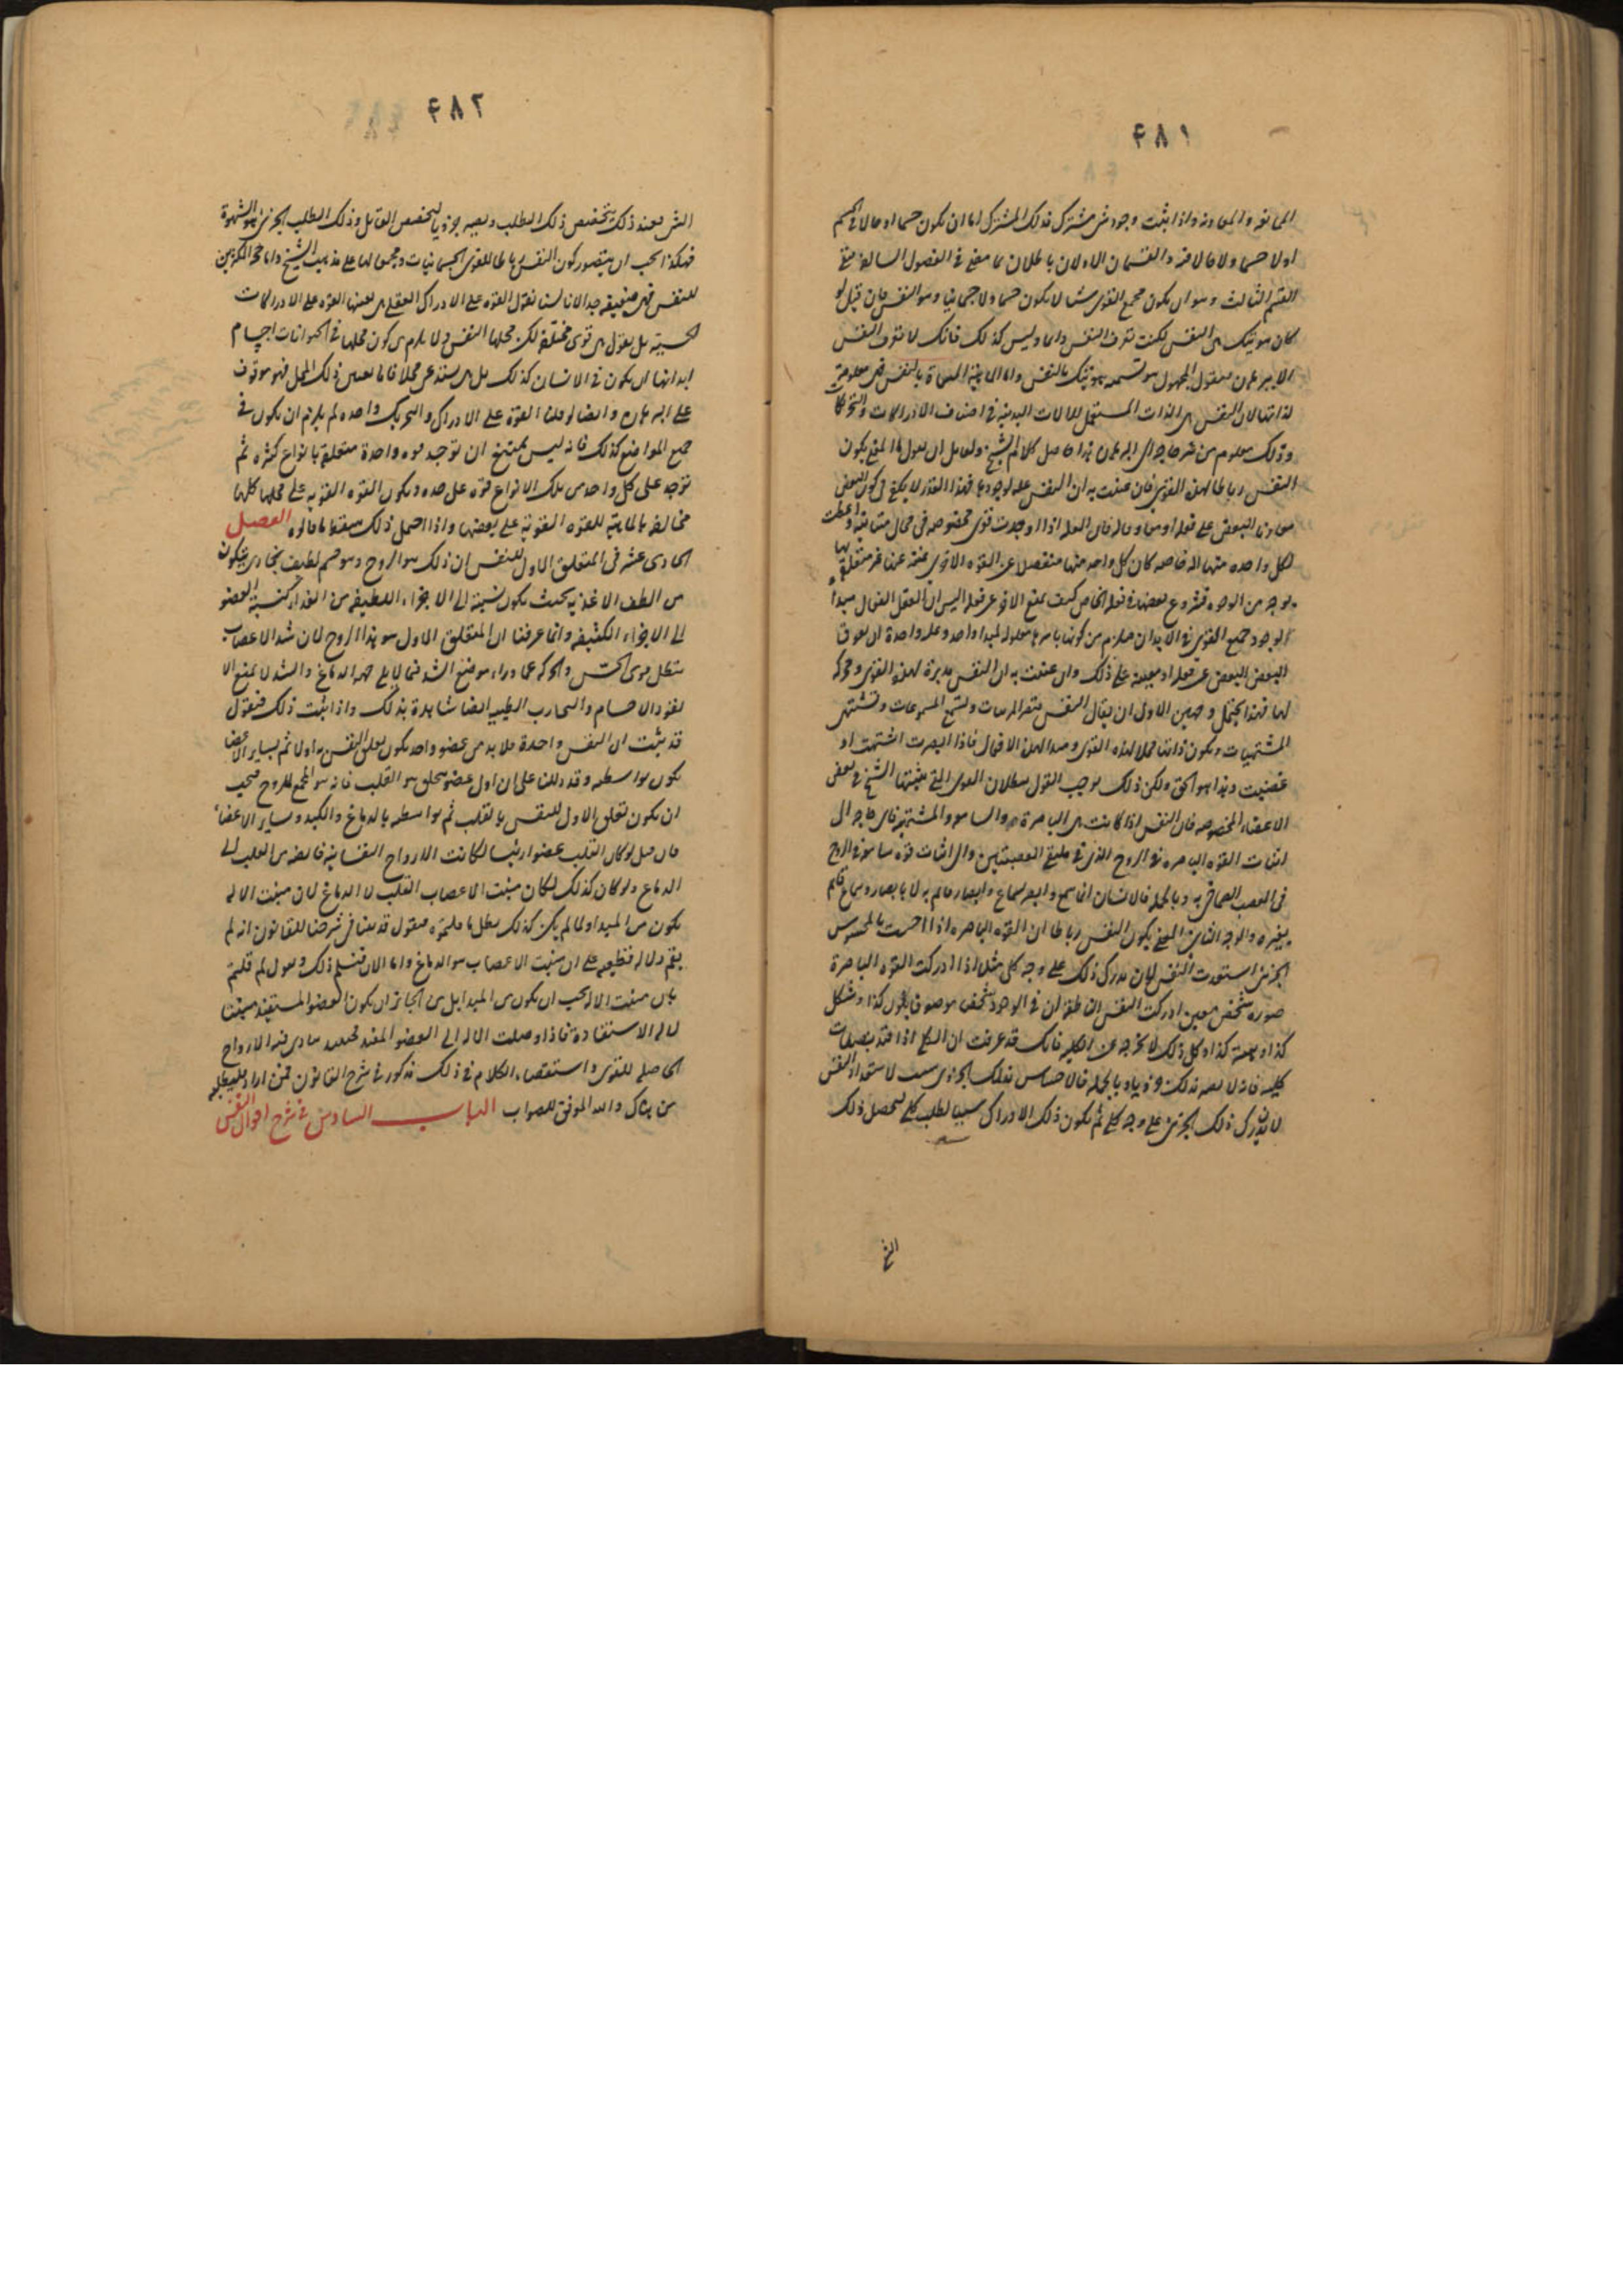 ۴۸۱
الممانعة والمعاونة واذا ثبت وجود شئ مشترك فذلك المشترك اما ان يكون جسما او حالا فى الجسم
اولا جسما ولا حالا فيه والقسمان الاولان باطلان بما مضى فى الفصول السالفة فبقى
القسم الثالث وهو ان يكون مجمع القوى شيئا لا يكون جسما ولا جسمانيا وهو النفس فان قيل لو
كان هويتك هى النفس لكنت تعرف النفس دائما وليس كذلك فانك لا تعرف النفس
الا ببرهان فنقول المجهول هو تسمية هويتك بالنفس واما الماهية المسماة بالنفس فهى معلومة
لذاتها لان النفس هى الذات المستعمل للالات البدنية فى اصناف الادراكات والتحريكات
وذلك معلوم من غير حاجة الى البرهان هذا حاصل كلام الشيخ ولقائل ان يقول ما المعنى بكون
النفس رباطا لهذه القوى فان عنيت به ان النفس علة لوجودها فهذا القدر لا يكفى فى كون البعض
معاونا للبعض على فعله او معاوقا له فان العلة اذا اوجدت قوى مخصوصة فى محال متباينة واعطت
لكل واحدة منها الة خاصة كان كل واحد منها منفصلا عن القوة الاخرى غنية عنها غير متعلقة بها
بوجه من الوجوه فشروع بعضها فى فعله الخاص كيف يمنع الاخر عن فعله اليس ان العقل الفعال مبدأ
لوجود جميع القوى فى الابدان فيلزم من كونها باسرها معلولة لمبدا واحد وعلة واحدة ان يعوق
البعض البعض عن فعله او يعينه على ذلك وان عنيت به ان النفس مدبرة لهذه القوى ومحركة
لها فهذا يحتمل وجهين الاول ان يقال النفس تبصر المرئيات وتسمع المسموعات وتشتهى
المشتهيات ويكون ذاتها محلا لهذه القوى ومبدا لهذه الافعال فاذا ابصرت اشتهت او
غضبت وهذا هو الحق ولكن ذلك يوجب القول ببطلان القوى التى يثبتها الشيخ فى بعض
الاعضاء المخصوصة فان النفس اذا كانت هى الباصرة والسامعة والمشتهية فاى حاجة الى
اثبات القوة الباصرة فى الروح الذى فى ملتقى العصبتين والى اثبات قوة سامعة فى الروح
فى العصب الصماخى وبالجملة فالانسان انما سمع وابصر بسماع وابصار قائم به لا بابصار وسماع قائم
بغيره والوجه الثانى المعنى بكون النفس رباطا ان القوة الباصرة اذا احست بالمحسوس
الجزئى استعدت النفس لان تدرك ذلك على وجه كلى مثلا اذا ادركت القوة الباصرة
صورة شخص معين ادركت النفس الناطقة ان فى الوجود شخصا موصوفا بلون كذا وشكل
كذا وهيئة كذا وكل ذلك لا يخرجه عن الكلية فانك قد عرفت ان الكلى اذا قيد بصفات
كلية فانه لا يصير بذلك جزئيا وبالجملة فالاحساس بذلك الجزئى سبب لاستعداد النفس
لان تدرك ذلك الجزئى على وجه كلى ثم يكون ذلك الادراك سببا لطلب كلى لتحصيل ذلك
۴۸۲
الشئ فعند ذلك يتخصص ذلك الطلب ويصير جزئيا لتخصص القابل وذلك الطلب الجزئى هو الشهوة
فهكذا يجب ان يتصور كون النفس رباطا للقوى الجسمانيات ومجمعا لها على مذهب الشيخ واما حجة المكثرين
للنفس فهى ضعيفة جدا لانا لسنا نقول القوة على الادراك العقلى هى بعينها القوة على الادراكات
الحسية بل نقول هى قوى مختلفة لكن محلها النفس ولا يلزم من كون محلها فى الحيوانات اجسام
ابدانها ان يكون فى الانسان كذلك بل هى يستدعى محلا فاما تعيين ذلك المحل فهو موقوف
على البرهان وايضا لو قلنا القوة على الادراك والتحريك واحدة لم يلزم ان يكون فى
جميع المواضع كذلك فانه ليس بممتنع ان توجد قوة واحدة متعلقة بانواع كثيرة ثم
توجد على كل واحد من تلك الانواع قوة على حدة ويكون القوة القوية على محلها كلها
مخالفة بالماهية للقوة القوية على بعضها واذا احتمل ذلك سقط ما قالوه الفصل
الحادى عشر فى المتعلق الاول للنفس ان ذلك هو الروح وهو جسم لطيف بخارى يتكون
من الطف الاغذية بحيث يكون نسبته الى الاجزاء اللطيفة من الغذاء كنسبة العضو
الى الاجزاء الكثيفة وانما عرفنا ان المتعلق الاول هو هذا الروح لان شد الاعصاب
يبطل قوى الحس والحركة عما وراء موضع الشد فيما لا يلى جهة الدماغ والشد لا يمنع الا
نفوذ الاجسام والتجارب الطبية ايضا شاهدة بذلك واذا ثبت ذلك فنقول
قد ثبت ان النفس واحدة فلا بد من عضو واحد يكون تعلق النفس به اولا ثم بسائر الاعضا
يكون بواسطته وقد دللنا على ان اول عضو يتخلق هو القلب فانه هو المجمع للروح فيجب
ان يكون تعلق الاول للنفس بالقلب ثم بواسطته بالدماغ والكبد وسائر الاعضاء
فان قيل لو كان القلب عضوا رئيسا لكانت الارواح النفسانية فائضة من القلب الى
الدماغ ولو كان كذلك لكان منبت الاعصاب القلب لا الدماغ لان منبت الالة
يكون من المبدا ولما لم يكن كذلك بطل ما قلتموه فنقول قد بينا فى شرحنا للقانون انه لم
يقم دلالة قطعية على ان منبت الاعصاب هو الدماغ واما الان فنسلم ذلك ونقول لم قلتم
بان منبت الالة يجب ان يكون من المبدا بل من الجائز ان يكون العضو المستفيد منبتا
لالة الاستفادة فاذا وصلت الالة الى العضو المفيد فحينئذ يتادى فيه الارواح
الحاملة للقوى واستقصاء الكلام فى ذلك مذكور فى شرح القانون فمن اراده فليطلبه
من هناك والله الموفق للصواب الباب السادس فى شرح احوال النفس